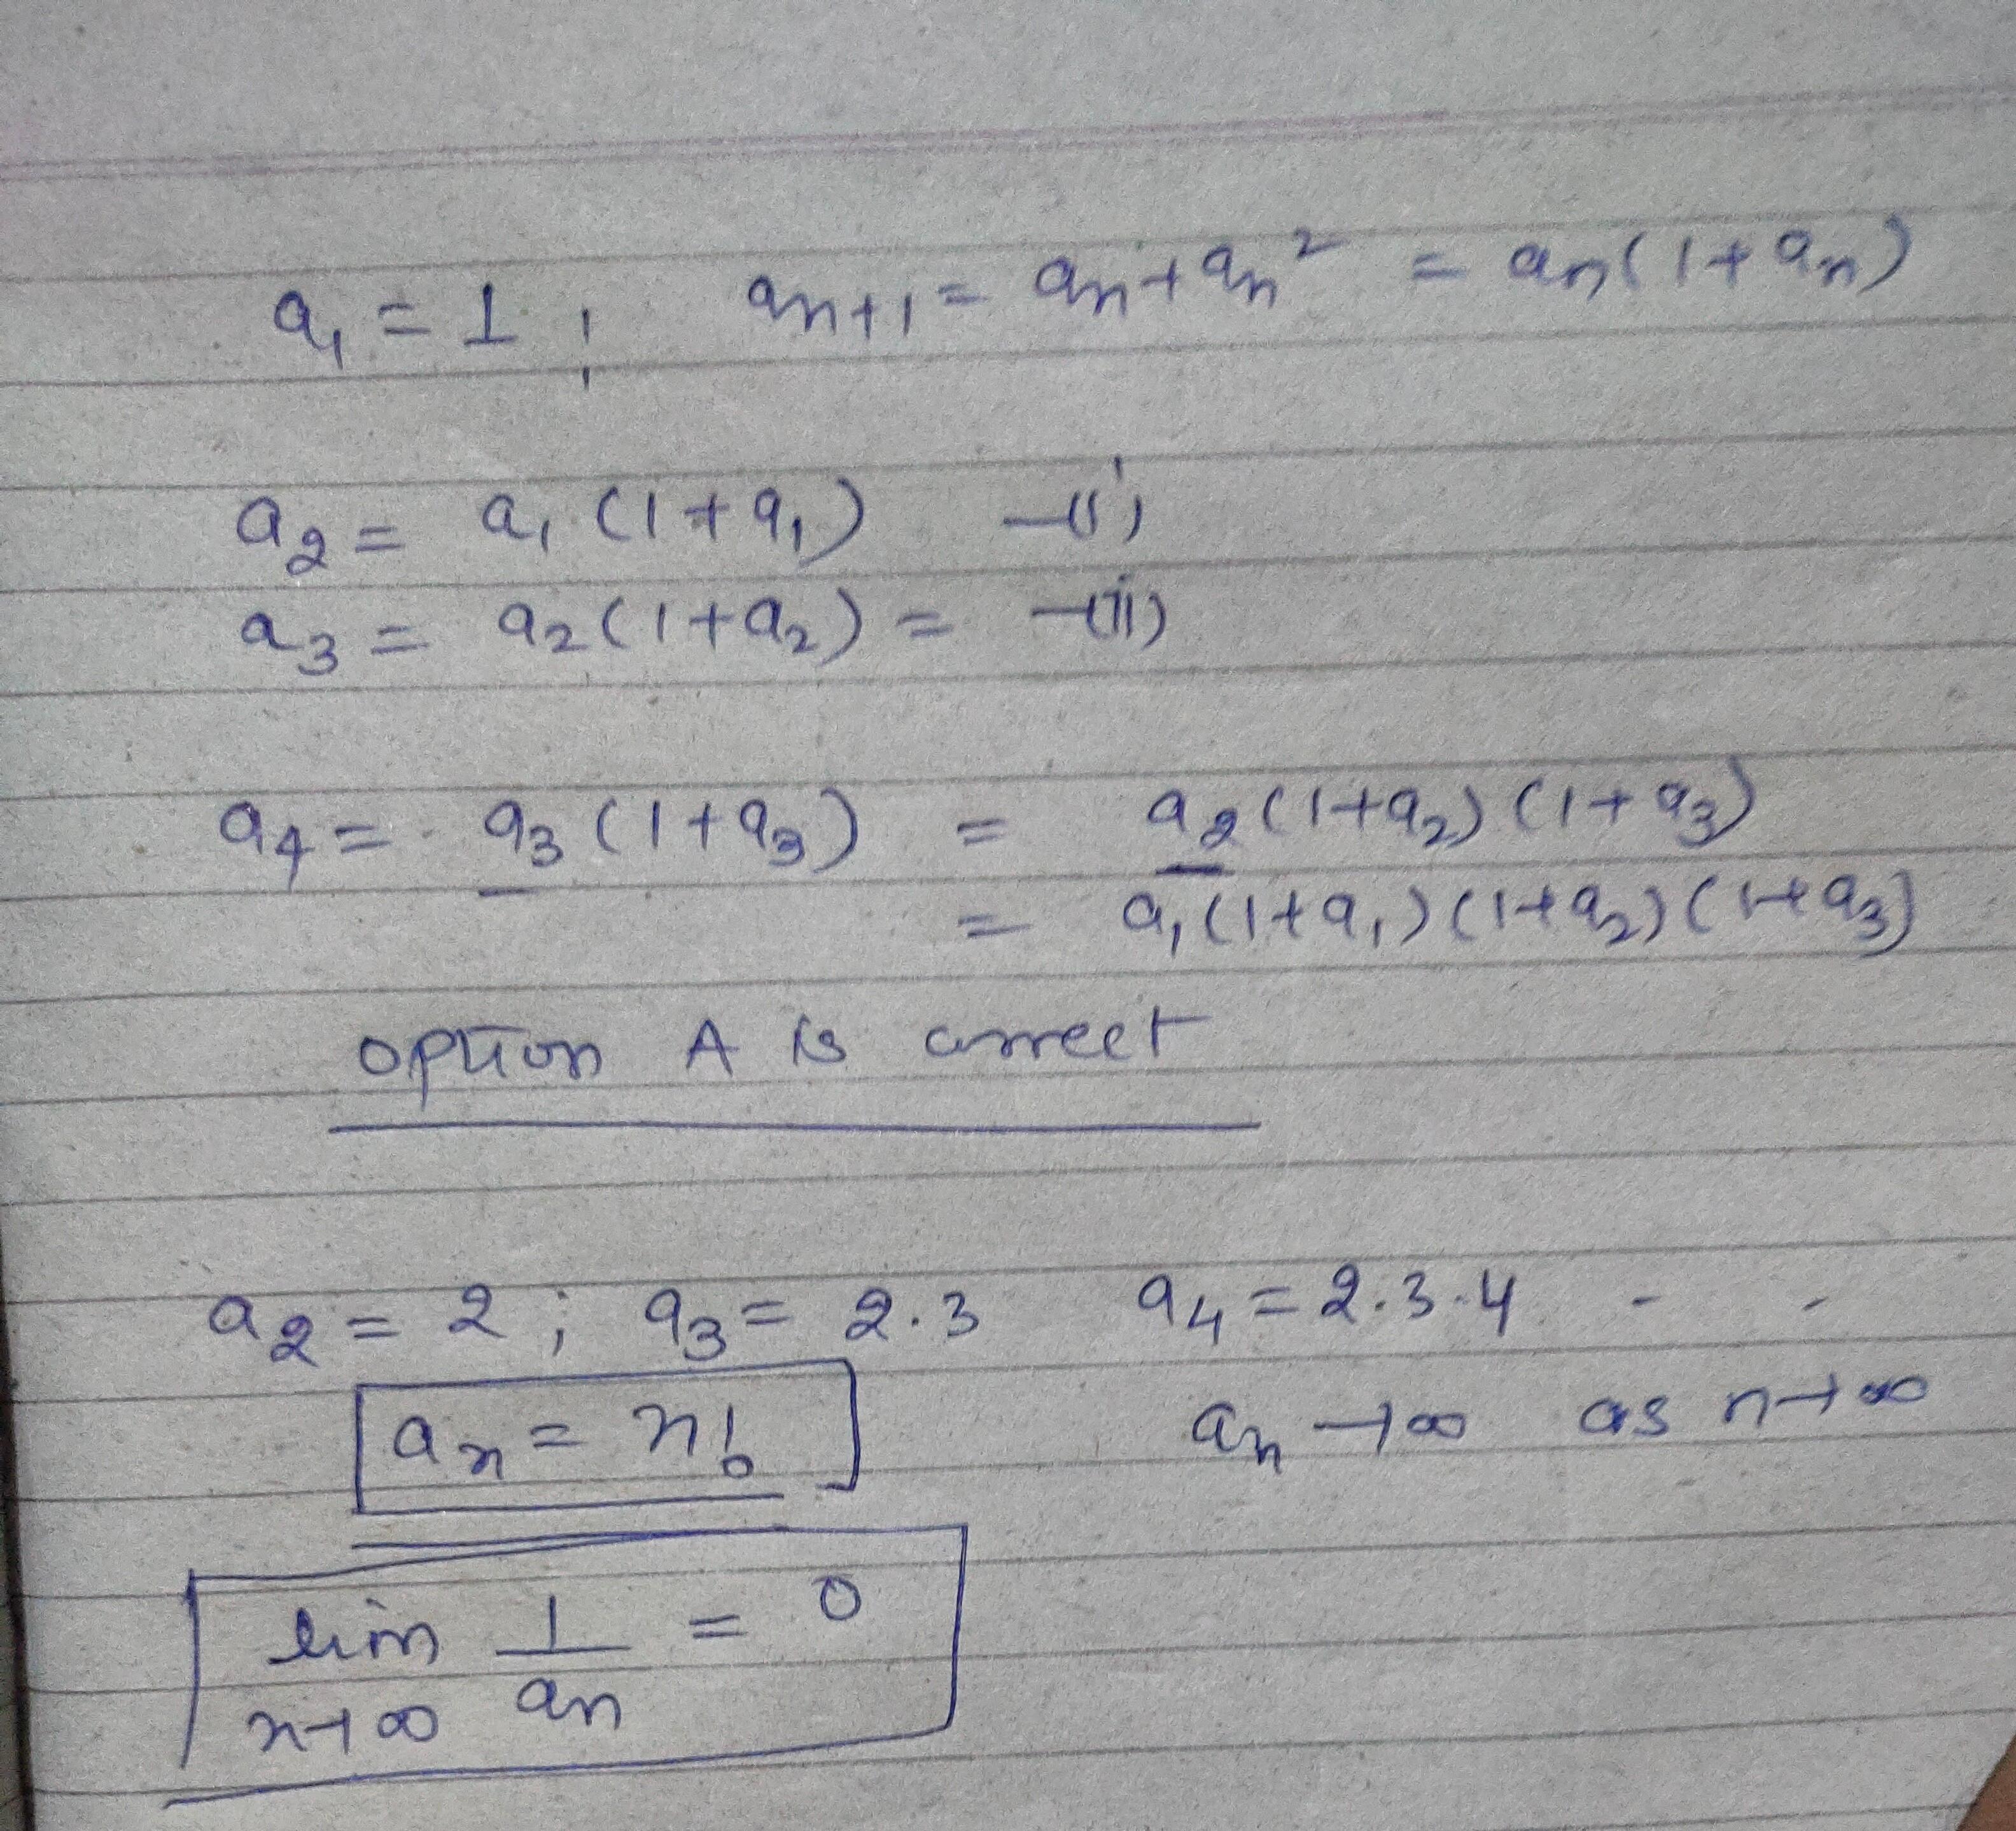 a₁ = 1 ; aₙ₊₁ = aₙ + aₙ² = aₙ(1 + aₙ)
a₂ = a₁(1 + a₁) —(i)
a₃ = a₂(1 + a₂) = —(ii)
a₄ = a₃(1 + a₃) = a₂(1 + a₂)(1 + a₃)
= a₁(1 + a₁)(1 + a₂)(1 + a₃)
option A is correct
a₂ = 2 ; a₃ = 2.3 a₄ = 2.3.4 - -
aₙ = n! aₙ → ∞ as n → ∞
lim n→∞ 1/aₙ = 0